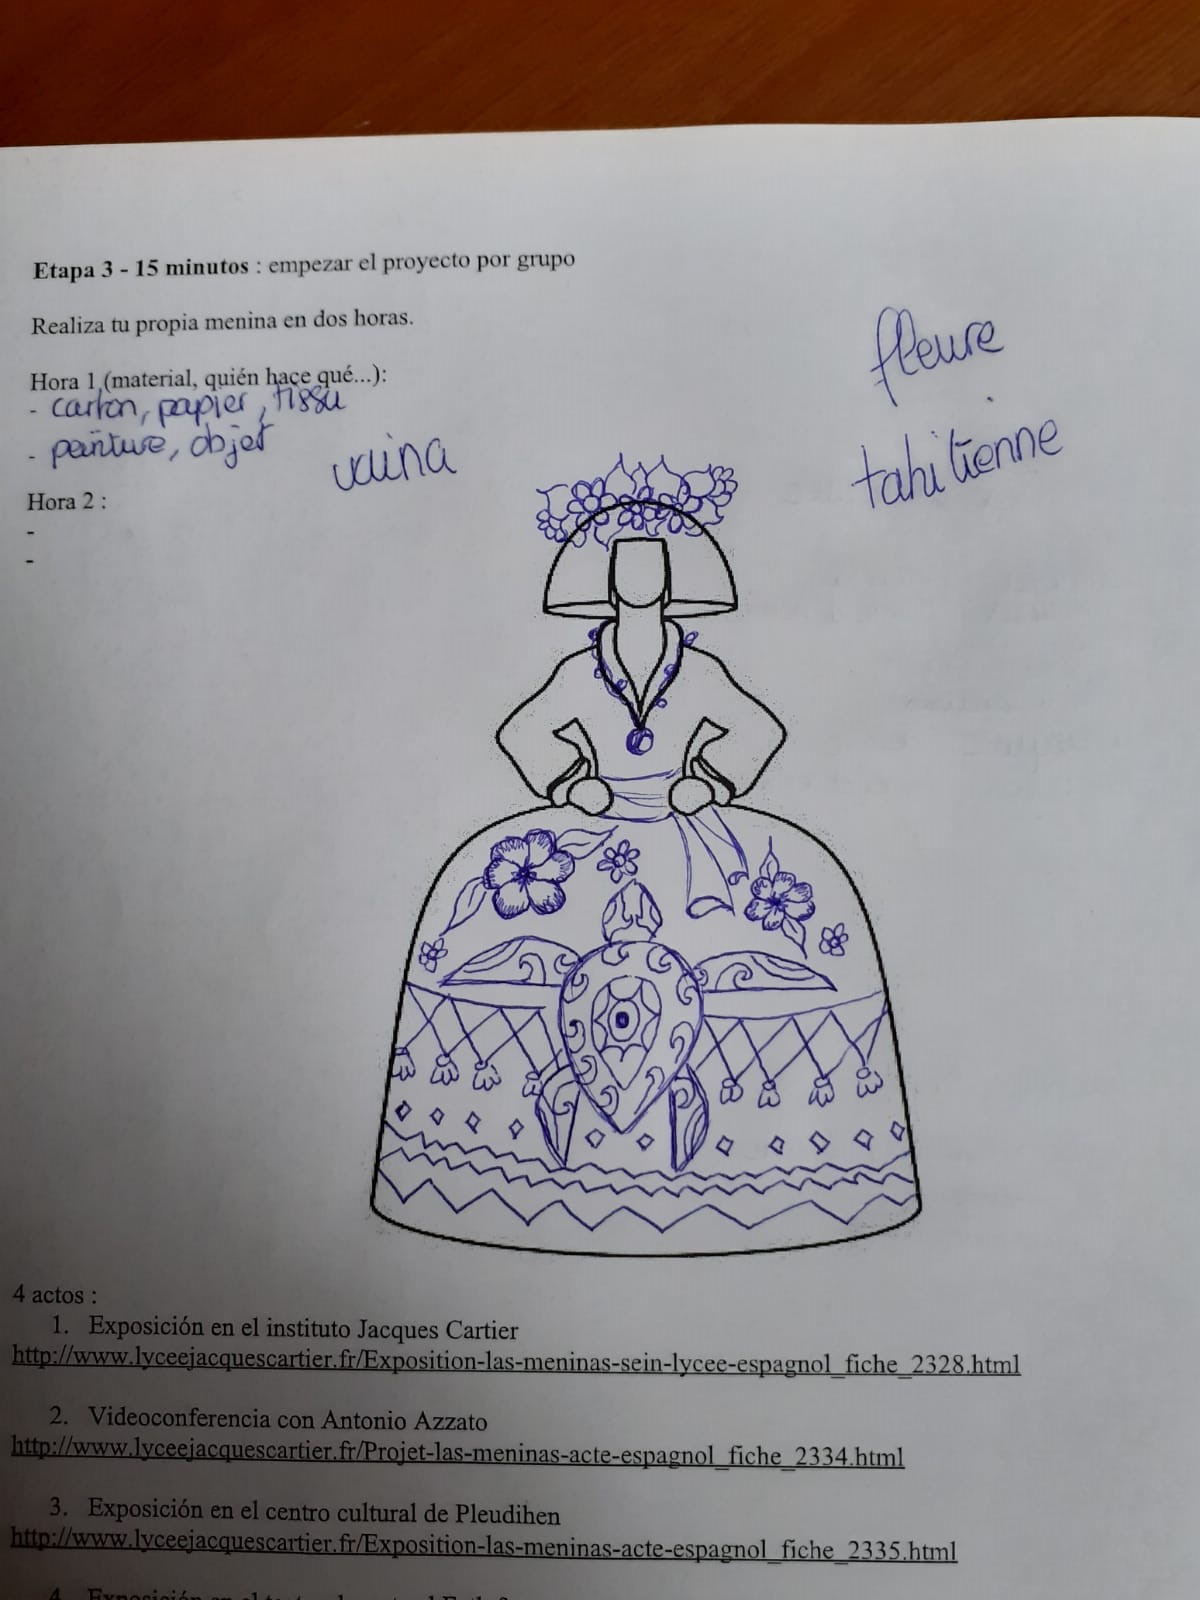 Etapa 3 - 15 minutos : empezar el proyecto por grupo
Realiza tu propia menina en dos horas.
Hora 1 (material, quién hace qué...):
- carton, papier, tissu
- peinture, objet
Hora 2 :
-
-
vaina
fleure
tahitienne
4 actos :
1. Exposición en el instituto Jacques Cartier
http://www.lyceejacquescartier.fr/Exposition-las-meninas-sein-lycee-espagnol_fiche_2328.html
2. Videoconferencia con Antonio Azzato
http://www.lyceejacquescartier.fr/Projet-las-meninas-acte-espagnol_fiche_2334.html
3. Exposición en el centro cultural de Pleudihen
http://www.lyceejacquescartier.fr/Exposition-las-meninas-acte-espagnol_fiche_2335.html
4. Exposición en el